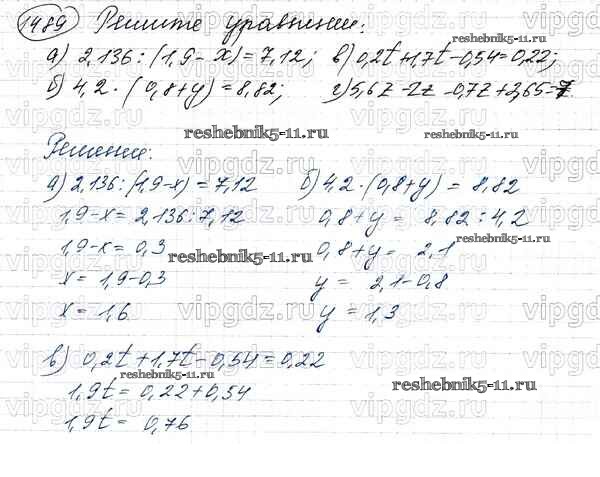 1489 Решите уравнения:
а) 2,136 : (1,9 - x) = 7,12; в) 0,2t + 1,7t - 0,54 = 0,22;
б) 4,2 · (0,8 + y) = 8,82; г) 5,6z - 2z - 0,7z + 2,65 = 7
reshebnik5-11.ru
reshebnik5-11.ru
Решение:
а) 2,136 : (1,9 - x) = 7,12 б) 4,2 · (0,8 + y) = 8,82
1,9 - x = 2,136 : 7,12 0,8 + y = 8,82 : 4,2
reshebnik5-11.ru
1,9 - x = 0,3 0,8 + y = 2,1
reshebnik5-11.ru
x = 1,9 - 0,3 y = 2,1 - 0,8
x = 1,6 y = 1,3
в) 0,2t + 1,7t - 0,54 = 0,22
reshebnik5-11.ru
1,9t = 0,22 + 0,54
reshebnik5-11.ru
1,9t = 0,76
vipgdz.ru vipgdz.ru vipgdz.ru vipgdz.ru